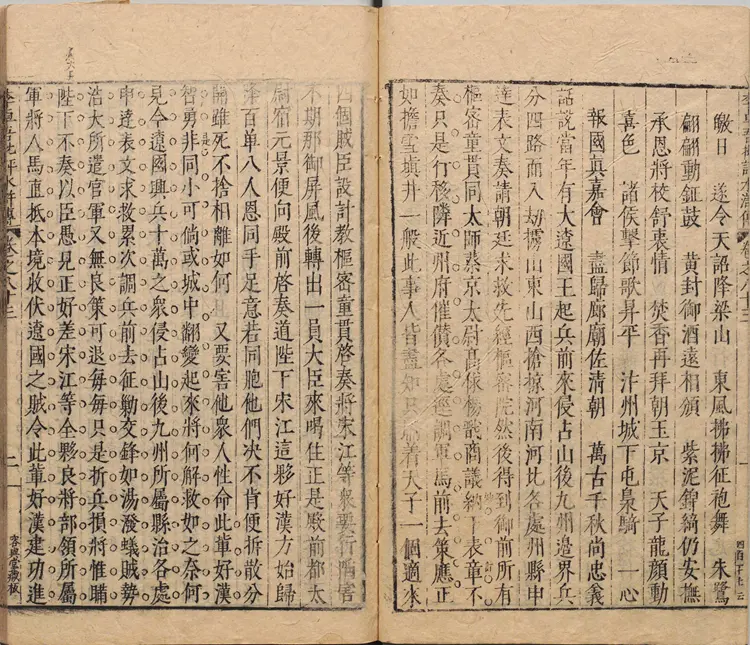 皦日 遂令天詔降梁山 東風拂拂征袍舞 朱鷺
翩翩動鉦鼓 黃封御酒遠相頒 紫泥錦綺仍安撫
承恩將校舒衷情 焚香再拜朝玉京 天子龍顏動
喜色 諸侯擊節歌昇平 汴州城下屯梟騎 一心
報國真嘉會 盡歸廊廟佐清朝 萬古千秋尚忠義
話說當年有大遼國王起兵前來侵占山後九州邊界兵
分四路而入刼擄山東山西搶掠河南河北各處州縣申
達表文奏請朝廷求救先經樞密院然後得到御前所有
樞密童貫同太師蔡京太尉高俅楊戩商議納下表章不
奏只是行移隣近州府催儹各處逕調軍馬前去策應正
如擔雪填井一般此事人皆盡知只瞞着天子一個適來
四個賊臣設計教樞密童貫啓奏將宋江等衆要行陷害
不期那御屏風後轉出一員大臣來喝住正是殿前都太
尉宿元景便向殿前啓奏道陛下宋江這夥好漢方始歸
降百单八人恩同手足意若同胞他們决不肯便拆散分
開雖死不捨相離如何又要害他衆人性命此輩好漢
智勇非同小可倘或城中翻變起來將何解救如之奈何
見今遼國興兵十萬之衆侵占山後九州所屬縣治各處
申達表文求救累次調兵前去征勦交鋒如湯潑蟻賊勢
浩大所遣官軍又無良策可退每每只是折兵損將惟瞞
陛下不奏以臣愚見正好差宋江等全夥良將部領所屬
軍將人馬直抵本境收伏遼國之賊令此輩好漢建功進
李卓吾批評水滸傳 卷之八十三 二
容與堂藏板